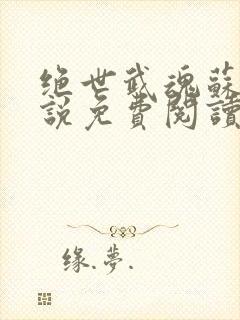 绝世武魂蘇
說免費閱讀
缘.夢.